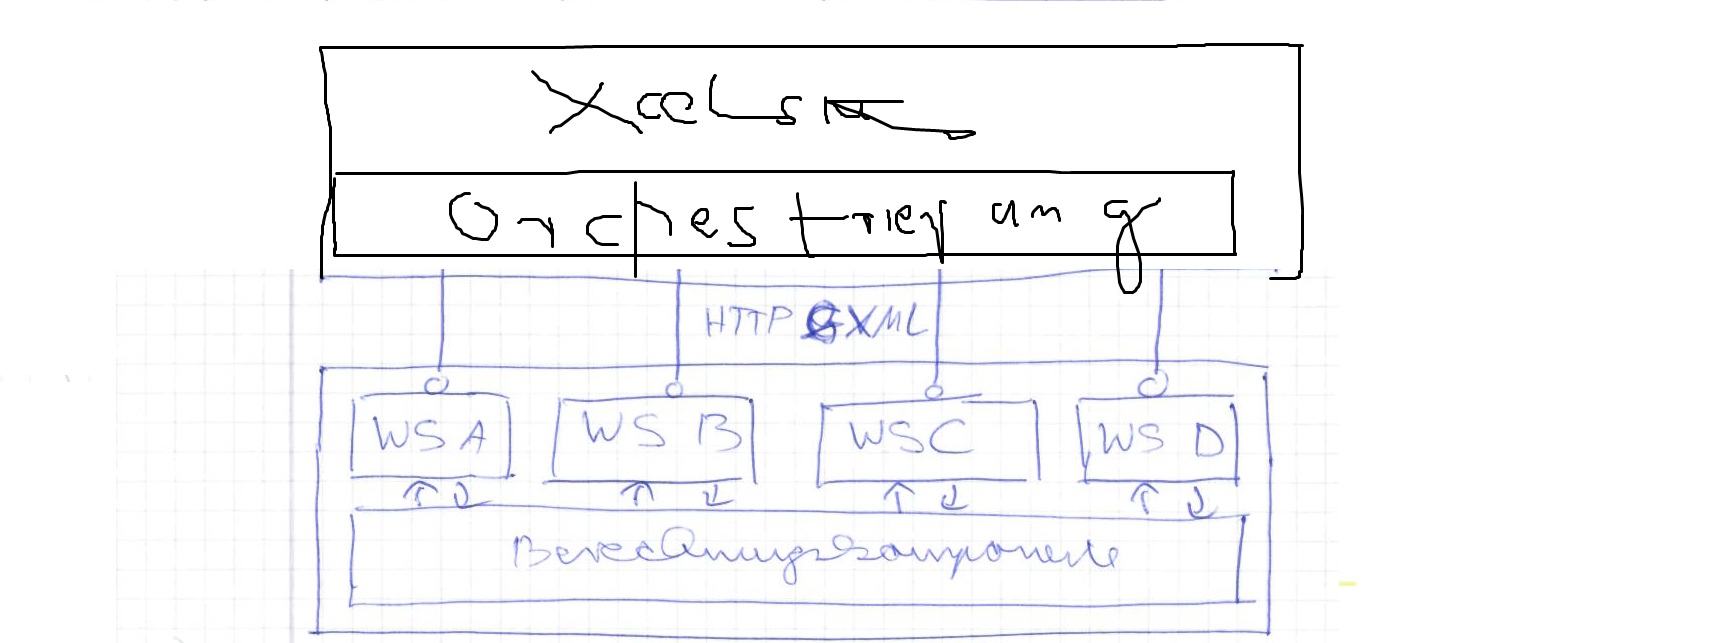 Orchestrierung
HTTP XML
WS A WS B WS C WS D
Berechnungskomponente